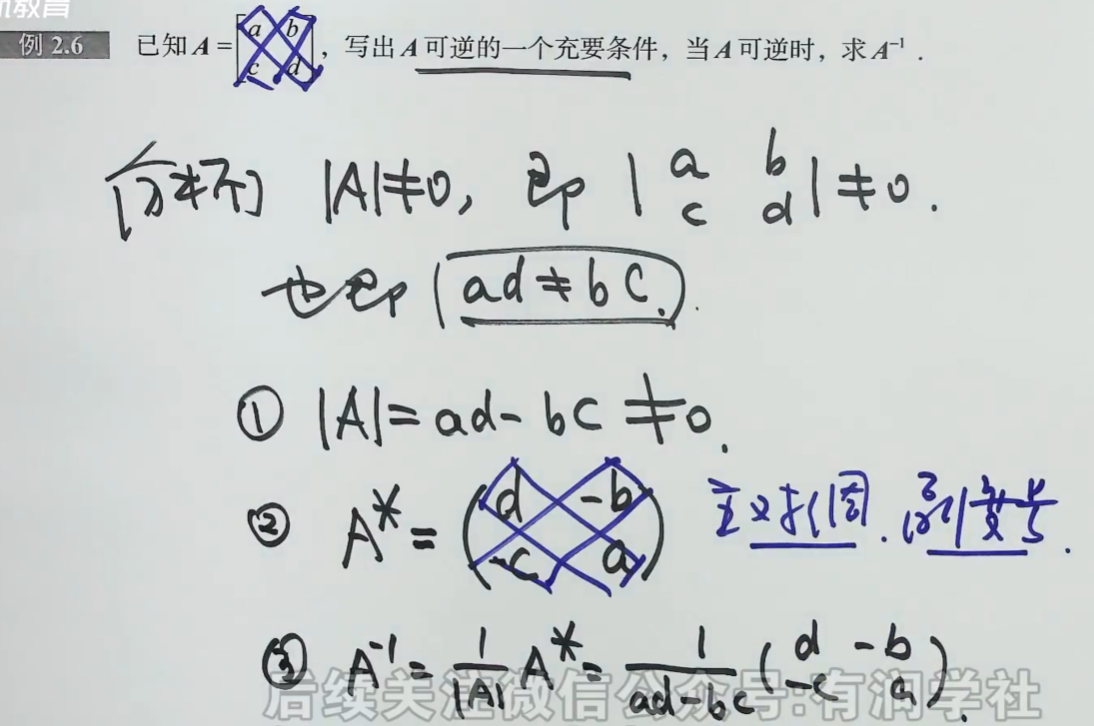 几教育
例 2.6 已知 A = [a b c d], 写出 A 可逆的一个充要条件, 当 A 可逆时, 求 A⁻¹.
[分析] |A|≠0, 即 |a b c d| ≠0.
也即 ad≠bc.
① |A|=ad-bc≠0.
② A*=(d -b -c a) 主对调. 副变号.
③ A⁻¹= 1/|A| A*= 1/(ad-bc) (d -b -c a)
后续关注微信公众号:有润学社